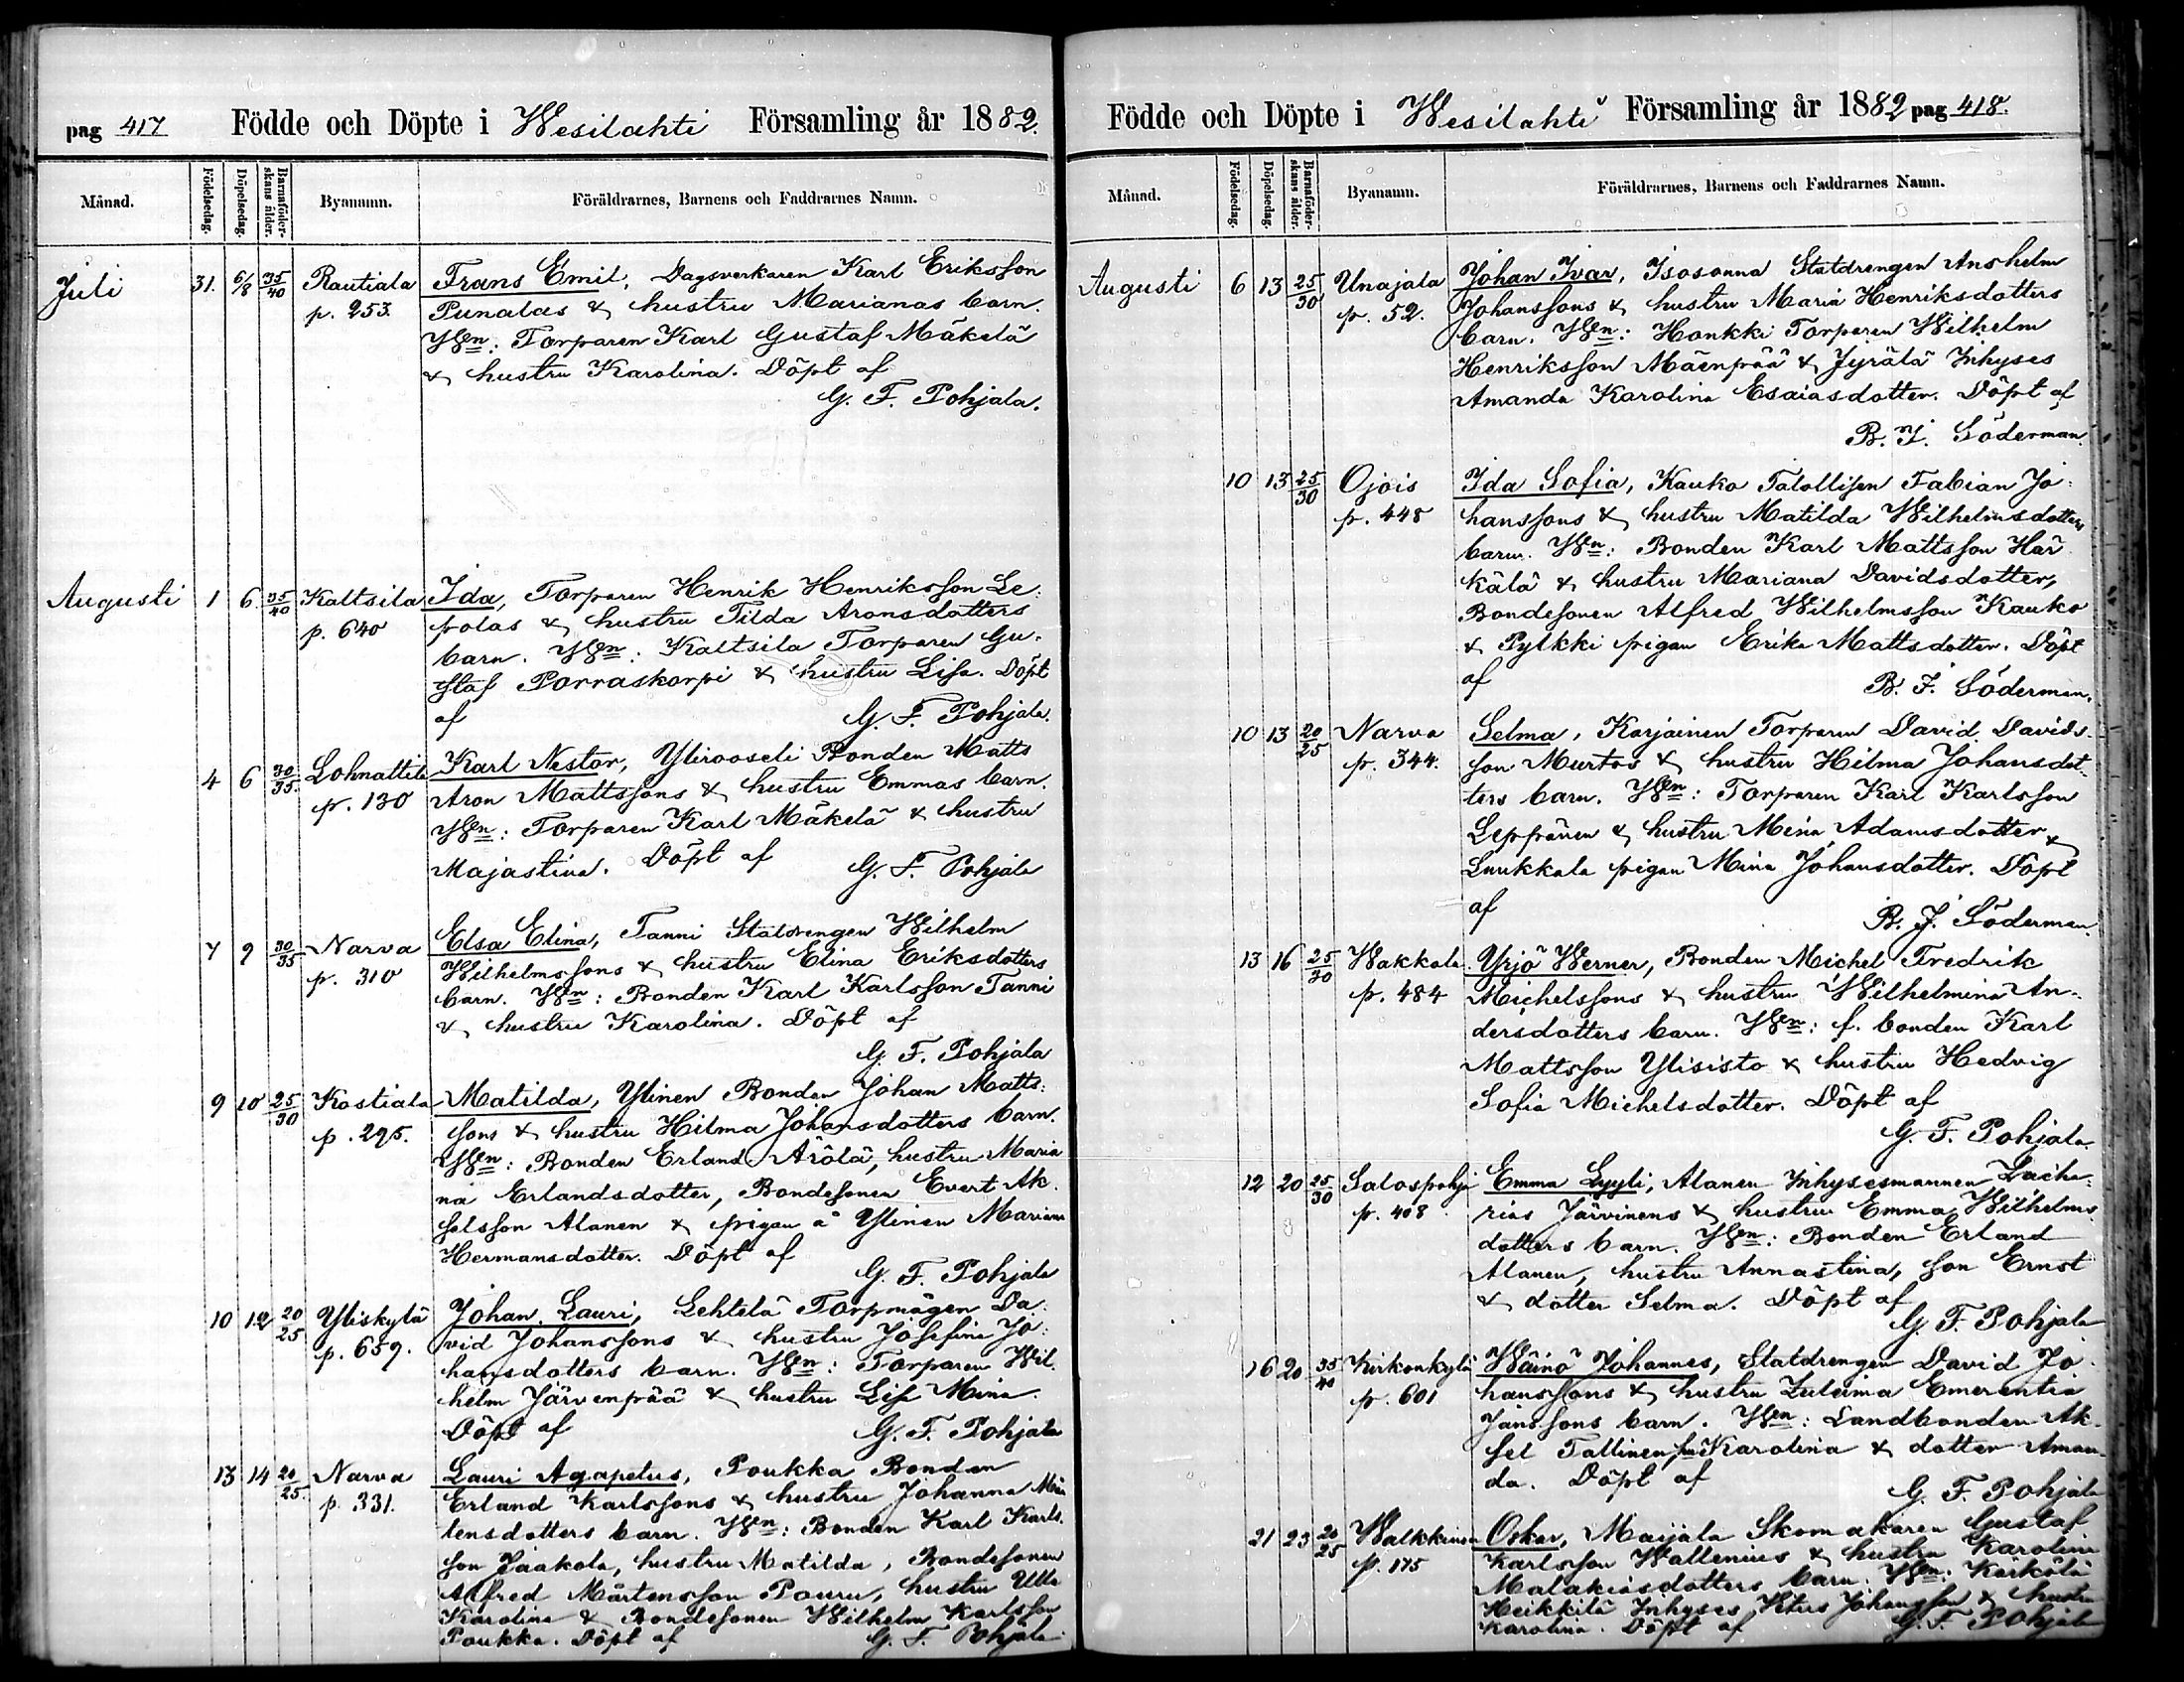 pag 417 Födde och Döpte i Wesilahti Församling år 1882.
Månad. Födelsedag. Döpelsedag. Barnaföderskans ålder. Byanamn. Föräldrarnes, Barnens och Faddrarnes Namn.
Juli 31. 6/8 35/40 Rautiala Frans Emil, Dagsverkaren Karl Eriksson
p. 253. Punalas & hustru Marianas barn.
Wn: Torparen Karl Gustaf Mäkelä
& hustru Karolina. Döpt af
G. F. Pohjala.
Augusti 1 6 35/40 Kaltsila Ida, Torparen Henrik Henriksson Le-
p. 640 polas & hustru Tilda Aronsdotters
barn. Wn: Kaltsila Torparen Gu-
staf Porraskorpi & hustru Lisa. Döpt
af G. F. Pohjala.
4 6 30/35 Lohnattila Karl Nestor, Ylirooseli Bonden Matts
p. 130 Aron Mattssons & hustru Emmas barn.
Wn: Torparen Karl Mäkelä & hustru
Majastina. Döpt af G. F. Pohjala
7 9 30/35 Narva Elsa Elina, Tanni Statdrengen Wilhelm
p. 310 Wilhelmssons & hustru Elina Eriksdotters
barn. Wn: Bonden Karl Karlsson Tanni
& hustru Karolina. Döpt af
G. F. Pohjala
9 10 25/30 Kostiala Matilda, Ylinen Bonden Johan Matts-
p. 295. sons & hustru Hilma Johansdotters barn.
Wn: Bonden Erland Ärölä, hustru Maria
na Erlandsdotter, Bondesonen Evert Ak-
selsson Alanen & pigan å Ylinen Mariana
Hermansdotter. Döpt af
G. F. Pohjala
10 12 20/25 Yliskylä Johan Lauri, Lehtelä Torpmågen Da-
p. 659. vid Johanssons & hustru Josefina Jo-
hansdotters barn. Wn: Torparen Wil-
helm Järvenpää & hustru Lisa Mina.
Döpt af G. F. Pohjala
13 14 20/25. Narva Lauri Agapetus, Poukka Bonden
p. 331. Erland Karlssons & hustru Johanna
tensdotters barn. Wn: Bonden Karl Karls-
son Jaakola, hustru Matilda, Bondesonen
Alfred Mårtensson Pouru, hustru Ulla
Karolina & Bondesonen Wilhelm Karlsson
Poukka. Döpt af G. F. Pohjala
Födde och Döpte i Wesilahti Församling år 1882 pag 418.
Månad. Födelsedag. Döpelsedag. Barnaföderskans ålder. Byanamn. Föräldrarnes, Barnens och Faddrarnes Namn.
Augusti 6 13 25/30 Unajala Johan Ivar, Isosonna Statdrengen Anshelm
p. 52. Johanssons & hustru Maria Henriksdotters
barn. Wn: Honkki Torparen Wilhelm
Henriksson Mäenpää & Jyrälä Inhyses
Amanda Karolina Esaiasdotter. Döpt af
B. J. Söderman.
10 13 25/30 Ojois Ida Sofia, Kauko Talollisen Fabian Jo-
p. 448 hanssons & hustru Matilda Wilhelmsdotters
barn. Wn: Bonden Karl Mattsson Här
kälä & hustru Mariana Davidsdotter,
Bondesonen Alfred Wilhelmsson Kauko
& Pylkki pigan Erika Mattsdotter. Döpt
af B. J. Söderman.
10 13 20/25 Narva Selma, Karjainen Torparen David Davids-
p. 344. son Murtos & hustru Hilma Johansdot-
ters barn. Wn: Torparen Karl Karlsson
Leppänen & hustru Mina Adamsdotter &
Luukkala pigan Mina Johansdotter. Döpt
af B. J. Söderman.
13 16 25/30 Wakkala. Yrjö Werner, Bonden Michel Fredrik
p. 484 Michelssons & hustru Wilhelmina An-
dersdotters barn. Wn: f. bonden Karl
Mattsson Ylisisto & hustru Hedvig
Sofia Michelsdotter. Döpt af
G. F. Pohjala.
12 20 25/30 Salospohja Emma Lyyli, Alanen Inhysesmannen Zacha-
p. 408 rias Järvinens & hustru Emma Wilhelms-
dotters barn. Wn: Bonden Erland
Alanen, hustru Annastina, son Ernst
& dotter Selma. Döpt af
G. F. Pohjala
16 20 35/40 Kirkonkylä Wäinö Johannes, Statdrengen David Jo-
p. 601 hanssons & hustru Zuleima Emerentia
Jänssons barn. Wn: Landbonden Ak-
sel Tallinen, hu Karolina & dotter Aman-
da. Döpt af G. F. Pohjala
21 23 20/25 Walkkinen Oskar, Maijala Skomakaren Gustaf
p. 175 Karlsson Wallenius & hustru Karolina
Malakiasdotters barn. Wn: Kärkölä
Heikkilä Inhyses Johansson & hustru
Karolina. Döpt af G. F. Pohjala